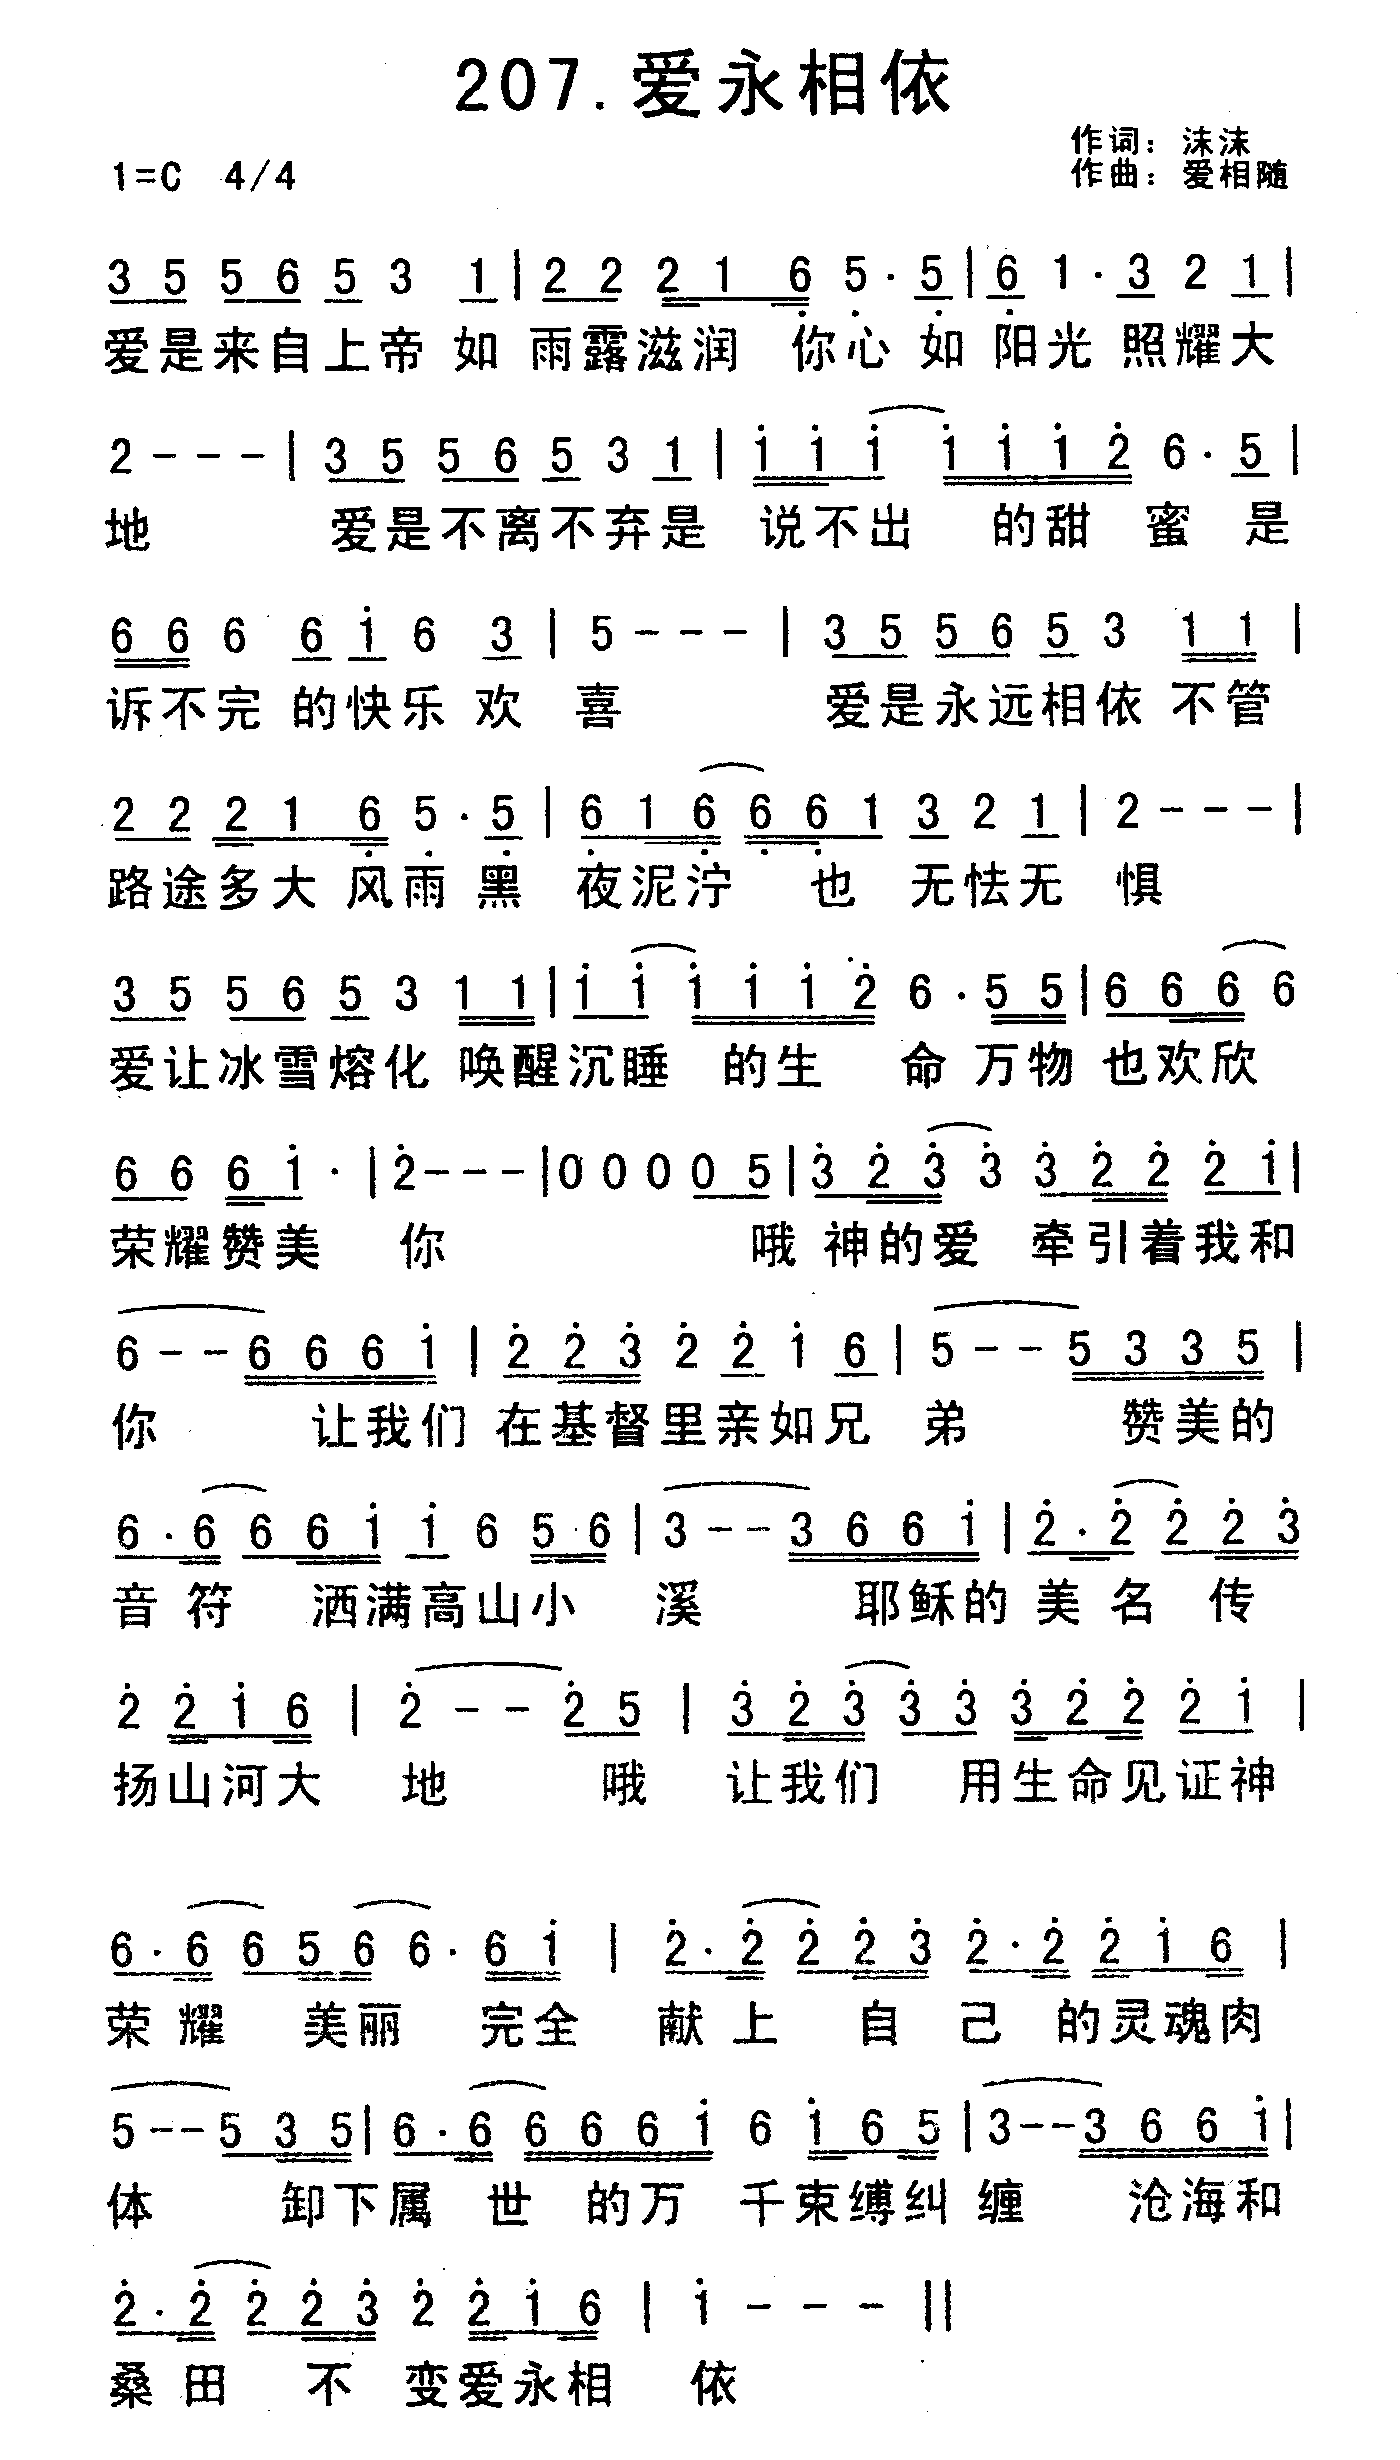 207.爱永相依
作词：沫沫
1=C 4/4
作曲：爱相随
3 5 5 6 5 3 1 | 2 2 2 1 6 5 · 5 | 6 1 · 3 2 1 |
爱是来自上帝 如 雨露滋润 你心 如 阳光 照耀大
2 - - - | 3 5 5 6 5 3 1 | i i i i i i 2 6 · 5 |
地 爱是不离不弃是 说不出 的甜 蜜 是
6 6 6 6 i 6 3 | 5 - - - | 3 5 5 6 5 3 1 1 |
诉不完 的快乐 欢 喜 爱是永远相依 不管
2 2 2 1 6 5 · 5 | 6 1 6 6 6 1 3 2 1 | 2 - - - |
路途多大 风雨 黑 夜泥泞 也 无怯无 惧
3 5 5 6 5 3 1 1 | i i i i i 2 6 · 5 5 | 6 6 6 6
爱让冰雪熔化 唤醒沉睡 的生 命 万物 也欢欣
6 6 6 i · | 2 - - - | 0 0 0 0 5 | 3 2 3 3 3 2 2 2 i |
荣耀赞美 你 哦 神的爱 牵引着我和
6 - - 6 6 6 i | 2 2 3 2 2 i 6 | 5 - - 5 3 3 5 |
你 让我们 在基督里亲如兄 弟 赞美的
6 · 6 6 6 i i 6 5 6 | 3 - - 3 6 6 i | 2 · 2 2 2 3
音 符 洒满高山小 溪 耶稣的 美 名 传
2 2 i 6 | 2 - - 2 5 | 3 2 3 3 3 3 2 2 2 i |
扬山河大 地 哦 让我们 用生命见证神
6 · 6 6 5 6 6 · 6 i | 2 · 2 2 2 3 2 · 2 2 i 6 |
荣 耀 美丽 完全 献 上 自 己 的灵魂肉
5 - - 5 3 5 | 6 · 6 6 6 6 i 6 i 6 5 | 3 - - 3 6 6 i |
体 卸下属 世 的万 千束缚纠 缠 沧海和
2 · 2 2 2 3 2 2 i 6 | i - - - ||
桑 田 不 变爱永相 依